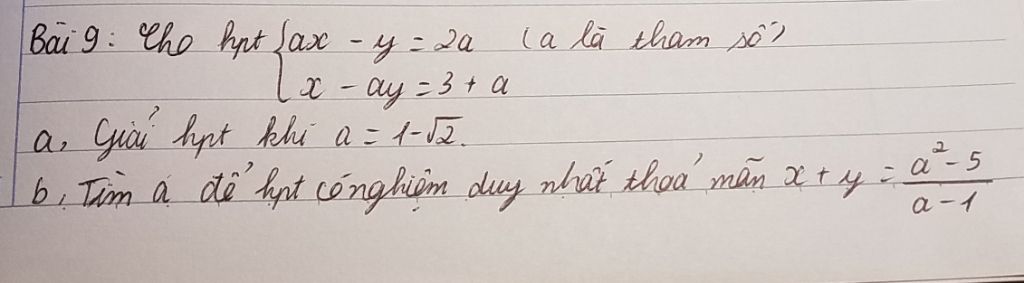 Bài 9: Cho hpt { ax - y = 2a (a là tham số)
x - ay = 3 + a
a, Giải hpt khi a = 1-√2.
b, Tìm a để hpt có nghiệm duy nhất thoả mãn x + y = (a² - 5)/(a - 1)